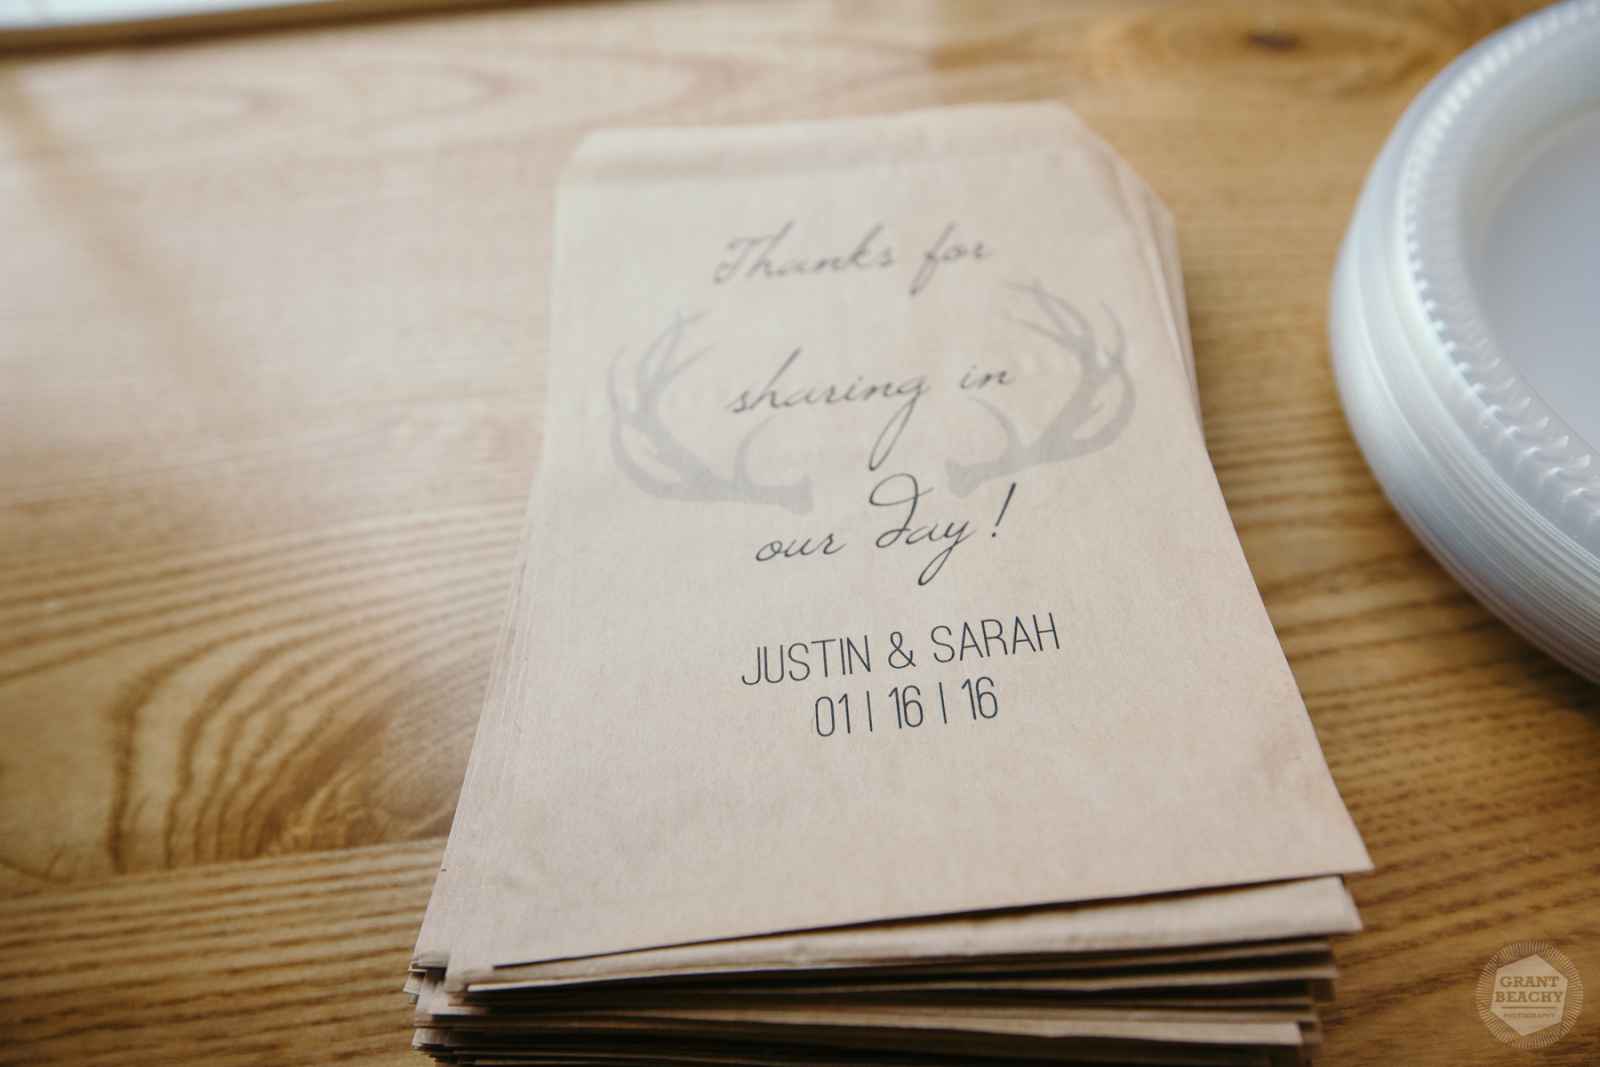 Thanks for
sharing in
our Day!
JUSTIN & SARAH
01 | 16 | 16
GRANT
BEACHY
PHOTOGRAPHY